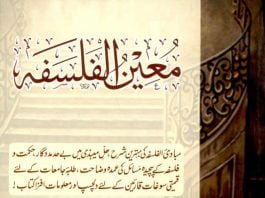 مُعینُ الفلسفہ
مبادئ الفلسفہ کی بہترین شرح، حل میبذی میں بے حد مددگار، حکمت و
فلسفہ کے پیچیدہ مسائل کی عمدہ وضاحت، طلبۂ جامعات کے لئے
قیمتی سوغات، قارئین کے لئے دلچسپ اور معلومات افزا کتاب!